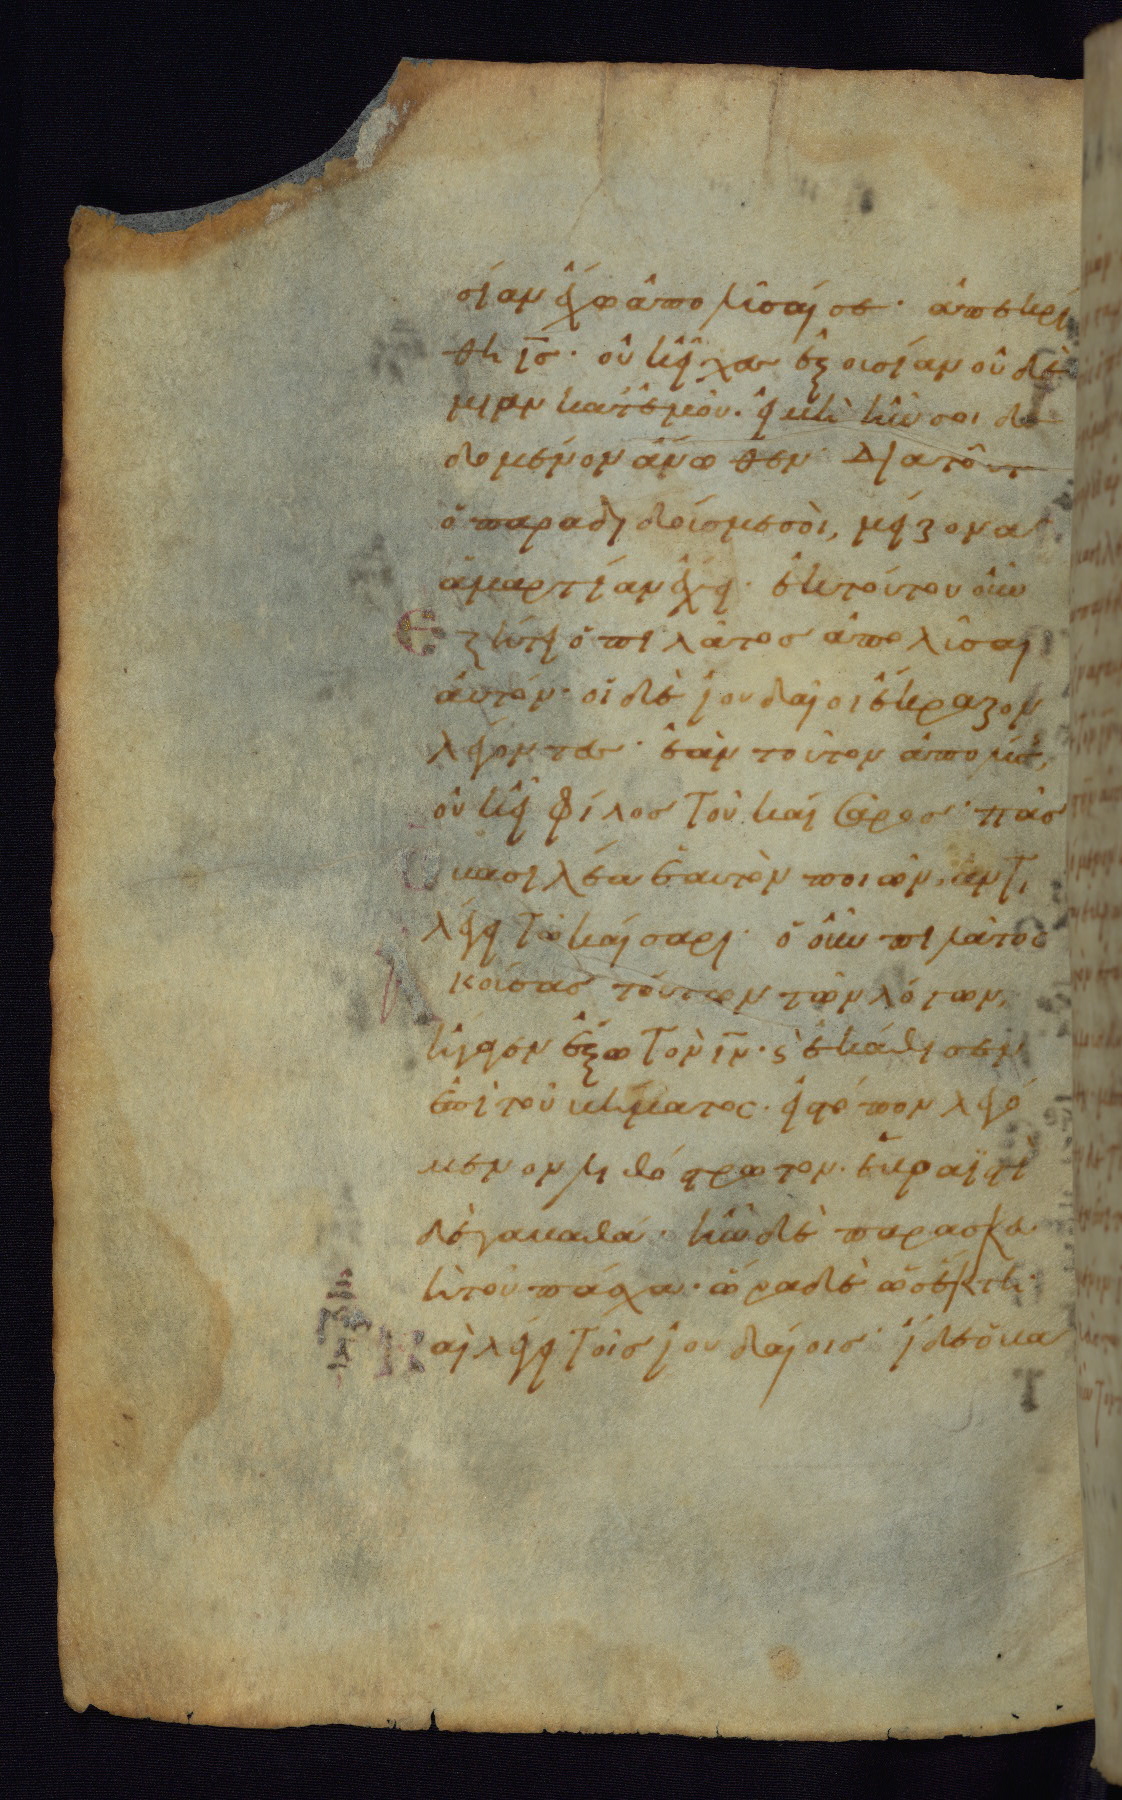 σίαν ἔχω ἀπολῦσαί σε· ἀπεκρί
θη ις̅· οὐκ εἶχες ἐξουσίαν οὐδε
μίαν κατ ἐμοῦ· εἰ μὴ ἦν σοι δε
δομένον ἄνωθεν· Διατοῦτ
ὁ παραδιδούς με σοὶ, μείζονα
ἁμαρτίαν ἔχει· ἐκ τούτου οὖν
Ἐζήτει ὁ πιλάτος ἀπολῦσαι
αὐτόν· οἱ δὲ ἰουδαῖοι ἔκραζον
λέγοντες· ἐὰν τοῦτον ἀπολύσ,
οὐκ εἶ φίλος τοῦ καίσαρος· πᾶσ
βασιλέα ἑαυτὸν ποιῶν, ἀντι
λέγει τῶ καίσαρι· ὁ οὖν πιλάτος
Ἀκούσας τούτων τῶν λόγων,
ἤγαγεν ἔξω τὸν ιν̅· ϛ ἐκάθισεν
ἐπὶ τοῦ βήματος· εἰς τόπον λεγό
μενον λιθόστρωτον· ἑβραϊστὶ
δὲ γαβαθά· ἦν δὲ παρασκε
ὺη τοῦ πάσχα· ὥρα δὲ ὡσέκτη·
Καὶ λέγει τοῖς ἰουδαίοις· ἴδε ὁ βα